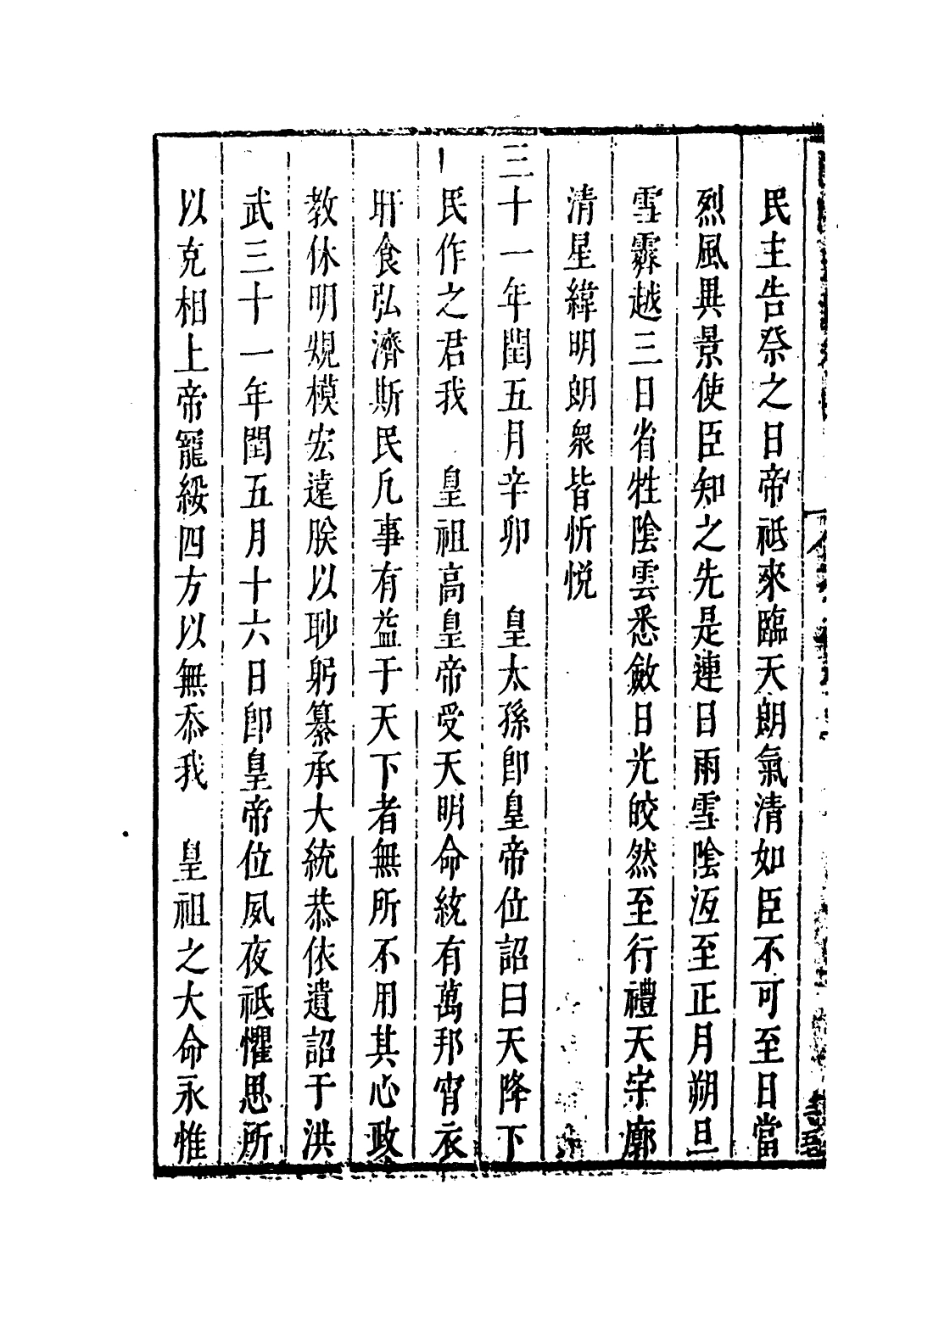 民主告祭之日帝祗來臨天朗氣清如臣不可至日當
烈風異景使臣知之先是連日雨雪陰沍至正月朔旦
雪霽越三日省牲陰雲悉斂日光皎然至行禮天宇廓
清星緯明朗衆皆忻悅
三十一年閏五月辛卯　皇太孫卽皇帝位詔曰天降下
民作之君我　皇祖高皇帝受天明命統有萬邦宵衣
旰食弘濟斯民凡事有益于天下者無所不用其心政
教休明規模宏遠朕以眇躬纂承大統恭依遺詔于洪
武三十一年閏五月十六日卽皇帝位夙夜祗懼思所
以克相上帝寵綏四方以無忝我　皇祖之大命永惟